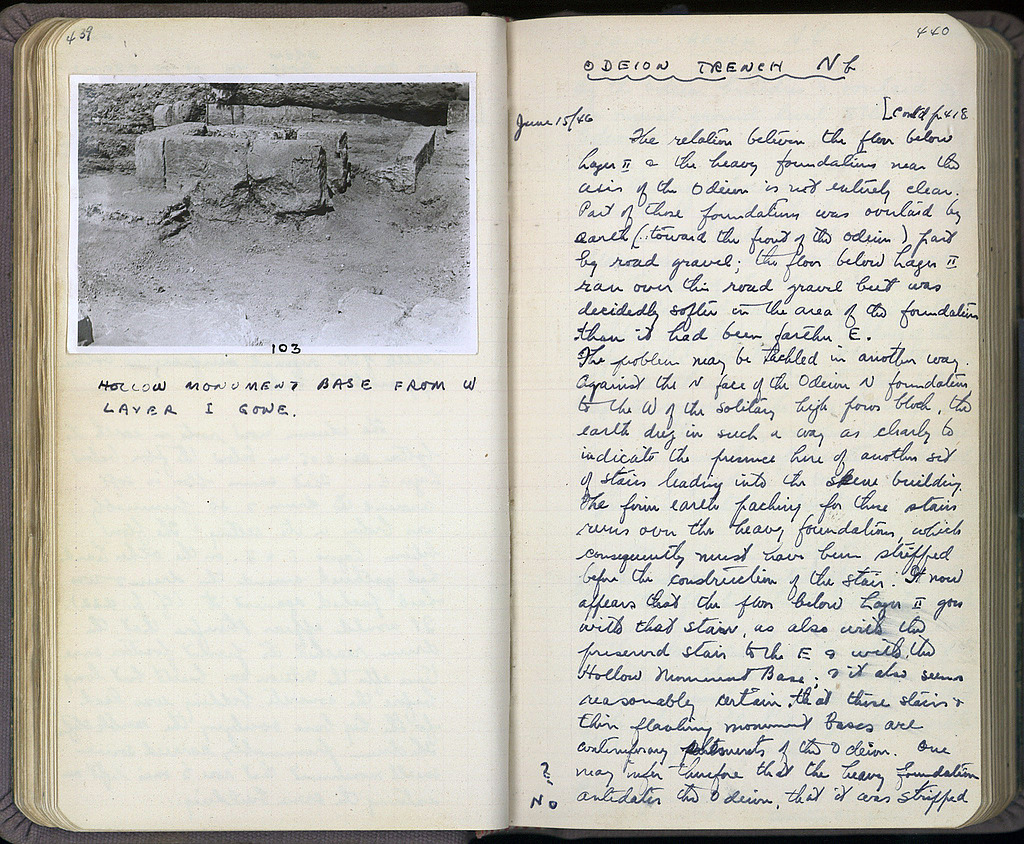 439
103
HOLLOW MONUMENT BASE FROM W
LAYER I GONE.
440
ODEION TRENCH Nf
[Contd p. 418
June 15/46
The relation between the floor below
Layer II & the heavy foundations near the
axis of the Odeion is not entirely clear.
Part of those foundations was overlaid by
earth (: toward the front of the Odeion) part
by road gravel; the floor below Layer II
ran over this road gravel but was
decidedly softer in the area of the foundations
than it had been farther E.
The problem may be tackled in another way.
Against the N face of the Odeion N foundation
to the W of the solitary high poros block, the
earth dug in such a way as clearly to
indicate the presence here of another set
of stairs leading into the skene building.
The firm earth packing for these stairs
runs over the heavy foundations, which
consequently must have been stripped
before the construction of the stair. It now
appears that the floor below Layer II goes
with that stair, as also with the
preserved stair to the E & with the
Hollow Monument Base; & it also seems
reasonably certain that these stairs &
their flanking monument bases are
contemporary of the Odeion. One
may infer therefore that the heavy foundation
antedates the Odeion, that it was stripped
?
NO